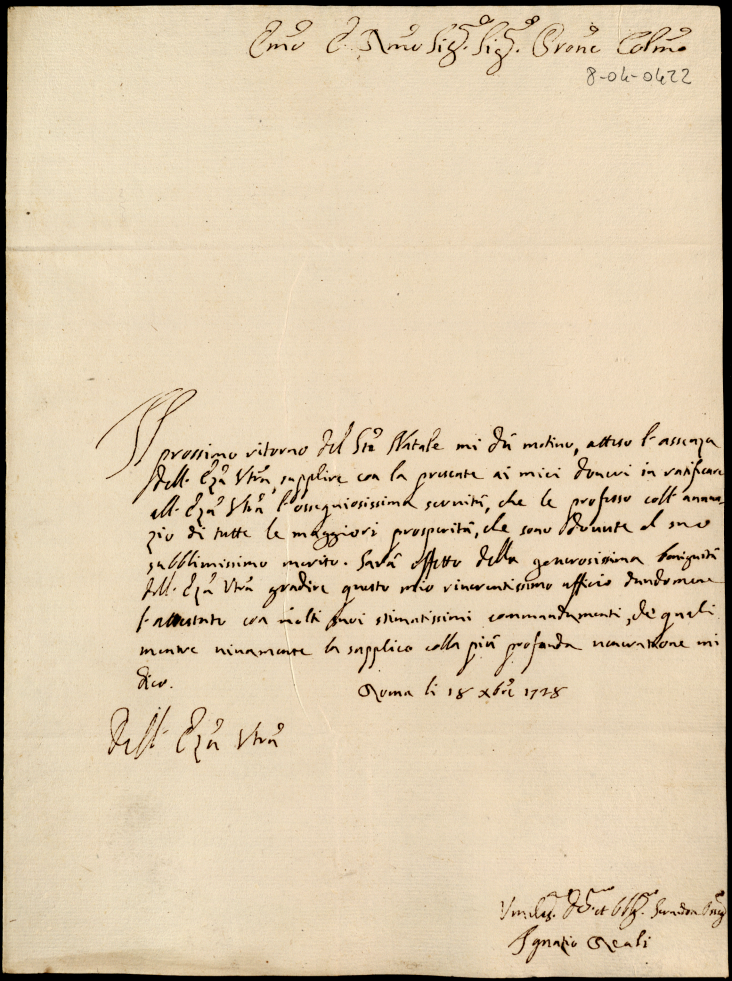 Emo E. Rmo Sig.r Sig.r Prone Colmo
8-04-0422
Il prossimo ritorno del Sto Natale mi dà motivo, atteso l'assenza
dell' Eza Vtra, supplire con la presente ai miei doveri in ratificare
all' Eza Vtra l'ossequiosissima servitù, che le professo coll' annun-
zio di tutte le maggiori prosperità, che sono dovute al suo
subblimissimo merito. Sarà effetto della generosissima benignità
dell' Eza Vtra gradire questo mio riverentissimo officio dandomene
l'attestato con molti suoi stimatissimi commandamenti, de quali
mentre vivamente la supplico colla più profonda venerazione mi
dico.
Roma li 18 Xbre 1728
Dell' Eza Vtra
Umiliss. et Servitor
Ignazio Reali